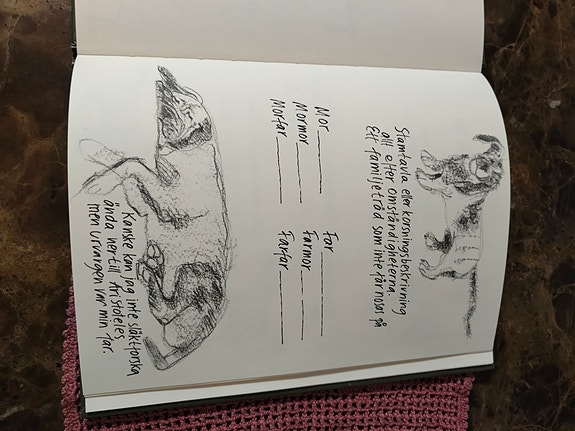 Stamtavla eller korsningsbeskrivning
allt efter omständigheterna.
Ett familjeträd som inte får nosas på
Mor Far
Mormor Farmor
Morfar Farfar
Kanske kan jag inte släktforska
ända ner till Aristoteles,
men urvargen var min far.